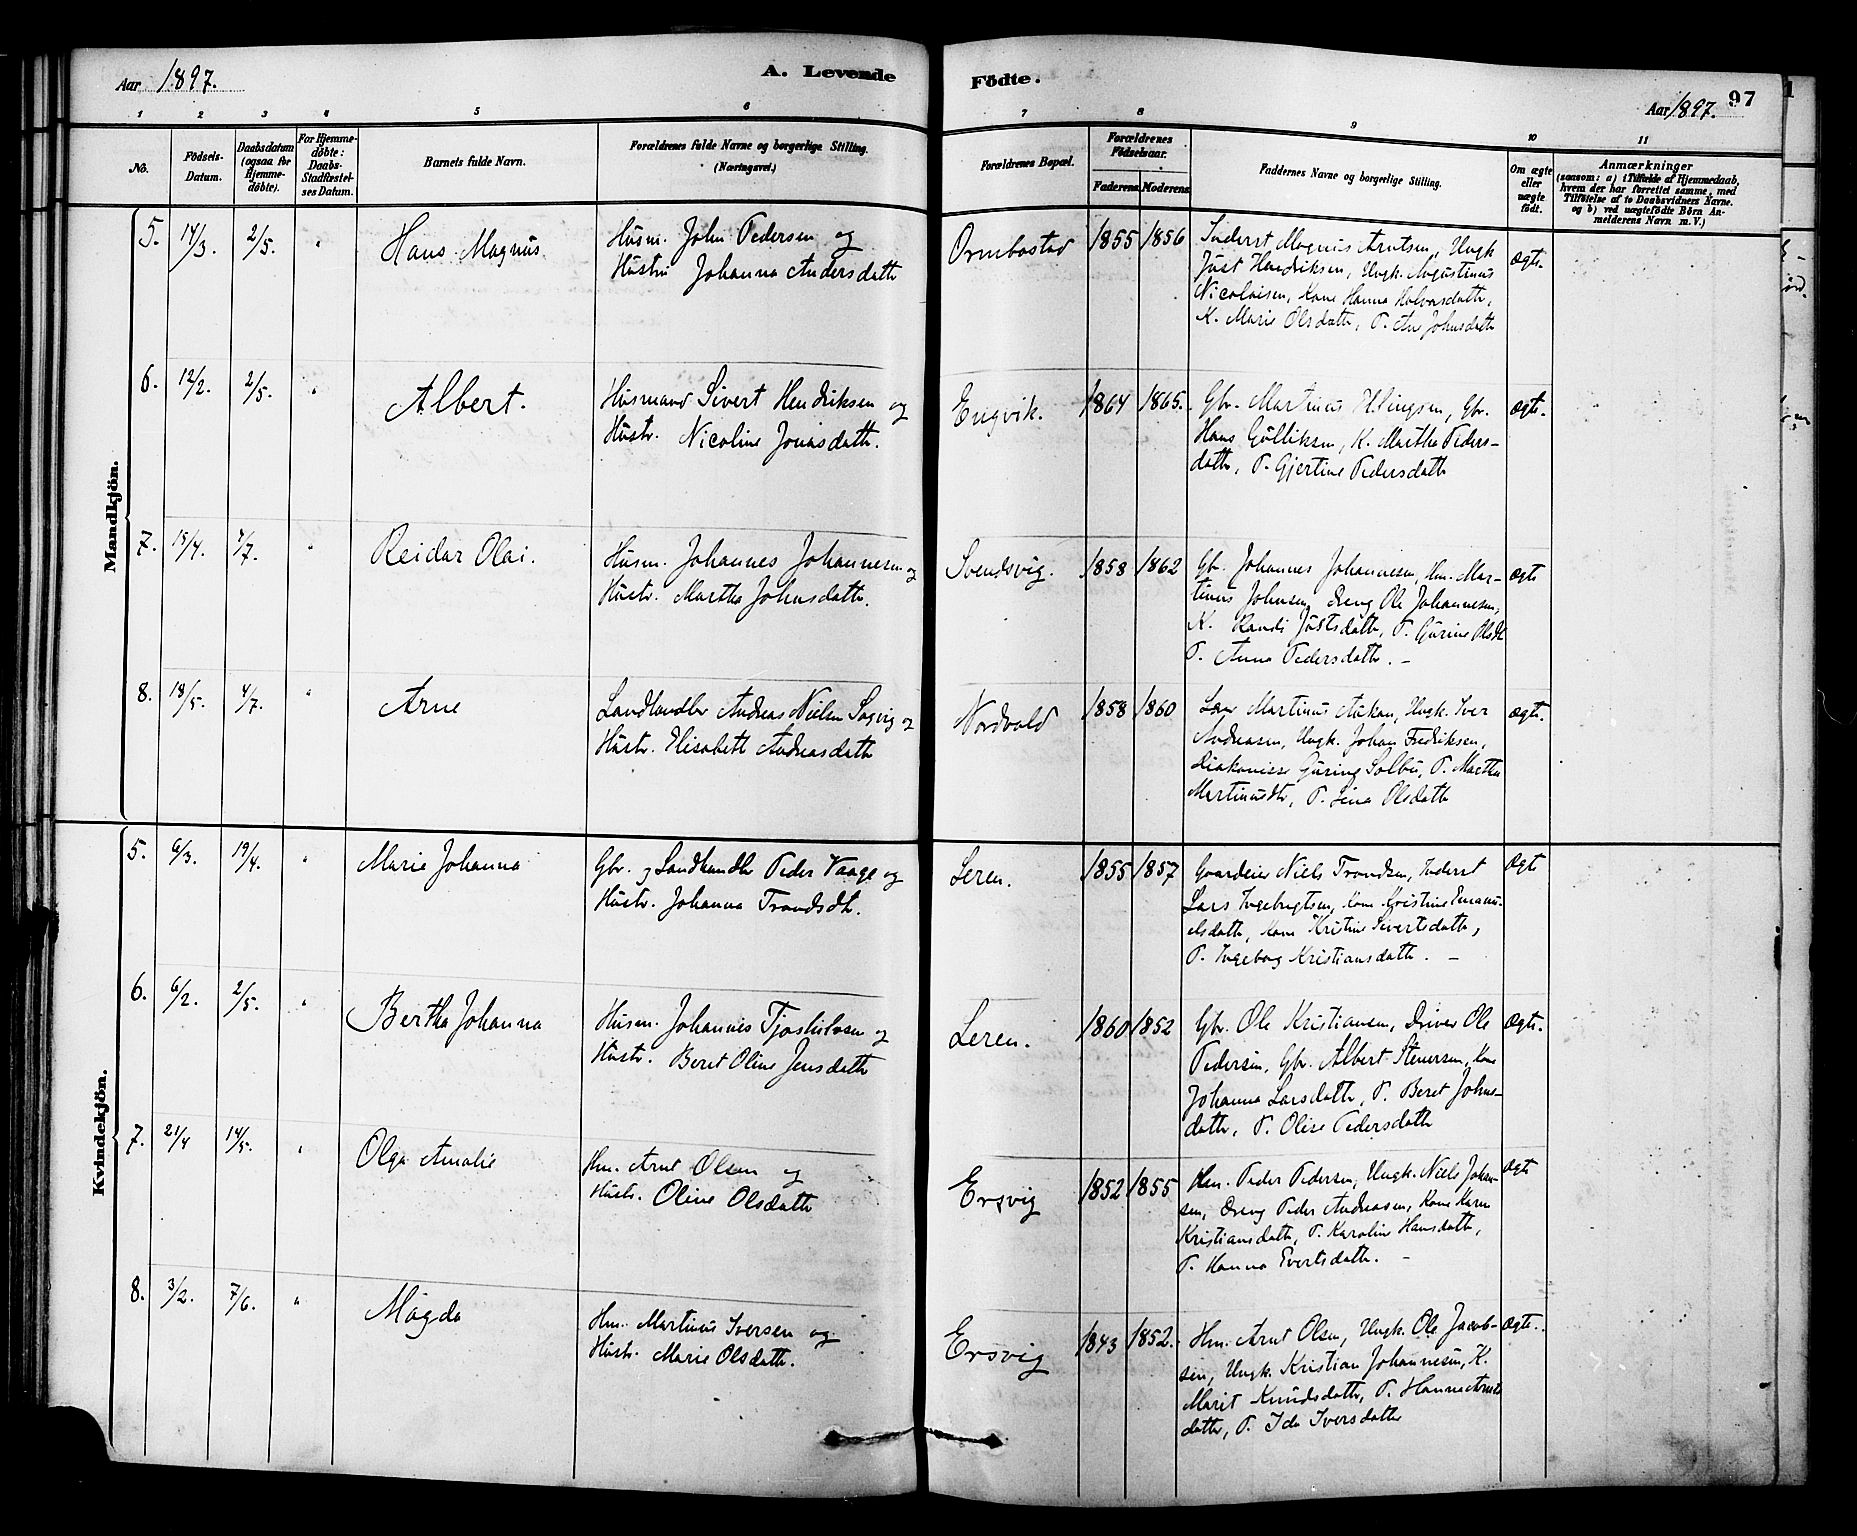 Aar 1897.
A. Levende
Födte.
Aar 1897.
97
1 2 3 4 5 6 7 8 9 10 11
No.
Födsels-Datum.
Daabsdatum (ogsaa for Hjemme-döbte).
For Hjemme-döbte: Daabs-Stadfæstel-ses Datum.
Barnets fulde Navn.
Forældrenes fulde Navne og borgerlige Stilling.
(Næringsvei.)
Forældrenes Bopæl.
Forældrenes Födselsaar.
Faderens. Moderens.
Faddernes Navne og borgerlige Stilling.
Om ægte eller uægte födt.
Anmærkninger
(saasom: a) i Tilfælde af Hjemmedaab,
hvem der har forrettet samme, med
Tilföielse af to Daabsvidners Navne.
og b) ved uægtefödte Börn An-
melderens Navn m. V.)
Mandkjön.
5. 14/3. 2/5. " Hans Magnus
Husm. John Pedersen og
Hustru Johanna Andersdatter
Ormbostad 1855 1856
Inderst Magnus Arntsen, Ungk
Just Hendriksen, Ungk. Augustinus
Nicolaisen, Kone Hanna Halvorsdatter,
K. Marie Olsdatter, P. Ane Johnsdatter
ægte.
6. 12/2. 2/5. " Albert.
Husmand Sivert Hendriksen og
Hustr. Nicoline Jonasdatter.
Engvik. 1864 1865.
Gbr. Martinus Gbr.
Hans Gulliksen, K. Martha Peders-
datter, P. Gjertine Pedersdatter
ægte.
7. 15/4. 4/7. " Reidar Olai.
Husm. Johannes Johannesen og
Hustr. Martha Johnsdatter.
Svendsvig. 1858 1862
Gbr. Johannes Johannesen, Hm. Mar-
tinus Johnsen, Dreng Ole Johannesen,
K. Randi Justsdatter, P. Gurine Olsdtr
P. Anna Pedersdatter. –
ægte
8. 18/5. 4/7. " Arne
Landhandler Andreas Nielsen Sagvig og
Hustr. Elisabeth Andreasdatter
Nordvold 1858 1860
Martinus Aukan, Ungk. Iver
Andreasen, Ungk. Johan Fredriksen,
Diakonisse Guring Solbu, P. Martha
Martinusdtr, P. Lina Olsdatter
ægte.
Kvindekjön.
5. 6/3. 19/4. " Marie Johanna
Gbr. og Landhandler Peder Vaage og
Hustr. Johanna Trondsdtr.
Leren. 1855 1857
Gaardeier Niels Trondsen, Inderst
Lars Ingebrigtsen, Kone Kristine Emanu-
elsdatter, Kone Kristine Sivertsdatter,
P. Ingeborg Kristiansdatter. –
ægte
6. 6/2. 2/5. " Bertha Johanna
Husm. Johannes og
Hustr. Beret Oline Jensdatter
Leren. 1860 1852
Gbr. Ole Kristiansen, Driver Ole
Pedersen, Gbr. Albert Stenersen, Kone
Johanna Larsdatter, P. Beret Johns-
datter, P. Olise Pedersdatter
ægte.
7. 21/4 14/5. " Olga Amalie
Hm. Arnt Olsen og
Hustr. Oline Olsdatter
Ersvig 1852 1855
Hm. Peder Pedersen, Ungk. Niels Johan-
sen, Dreng Peder Andreasen, Kone Karen
Kristiansdatter, P. Karoline Hansdatter,
P. Hanna Evertsdatter. –
ægte
8. 3/2. 7/6. " Magda
Hm. Martinus Iversen og
Hustr. Marie Olsdatter.
Ersvig 1843 1852.
Hm. Arnt Olsen, Ungk. Ole Jacob-
sen, Ungk. Kristian Johannesen, K.
Marit Knudsdatter, P. Hanna Arnts
datter, P. Ida Iversdatter
ægte.